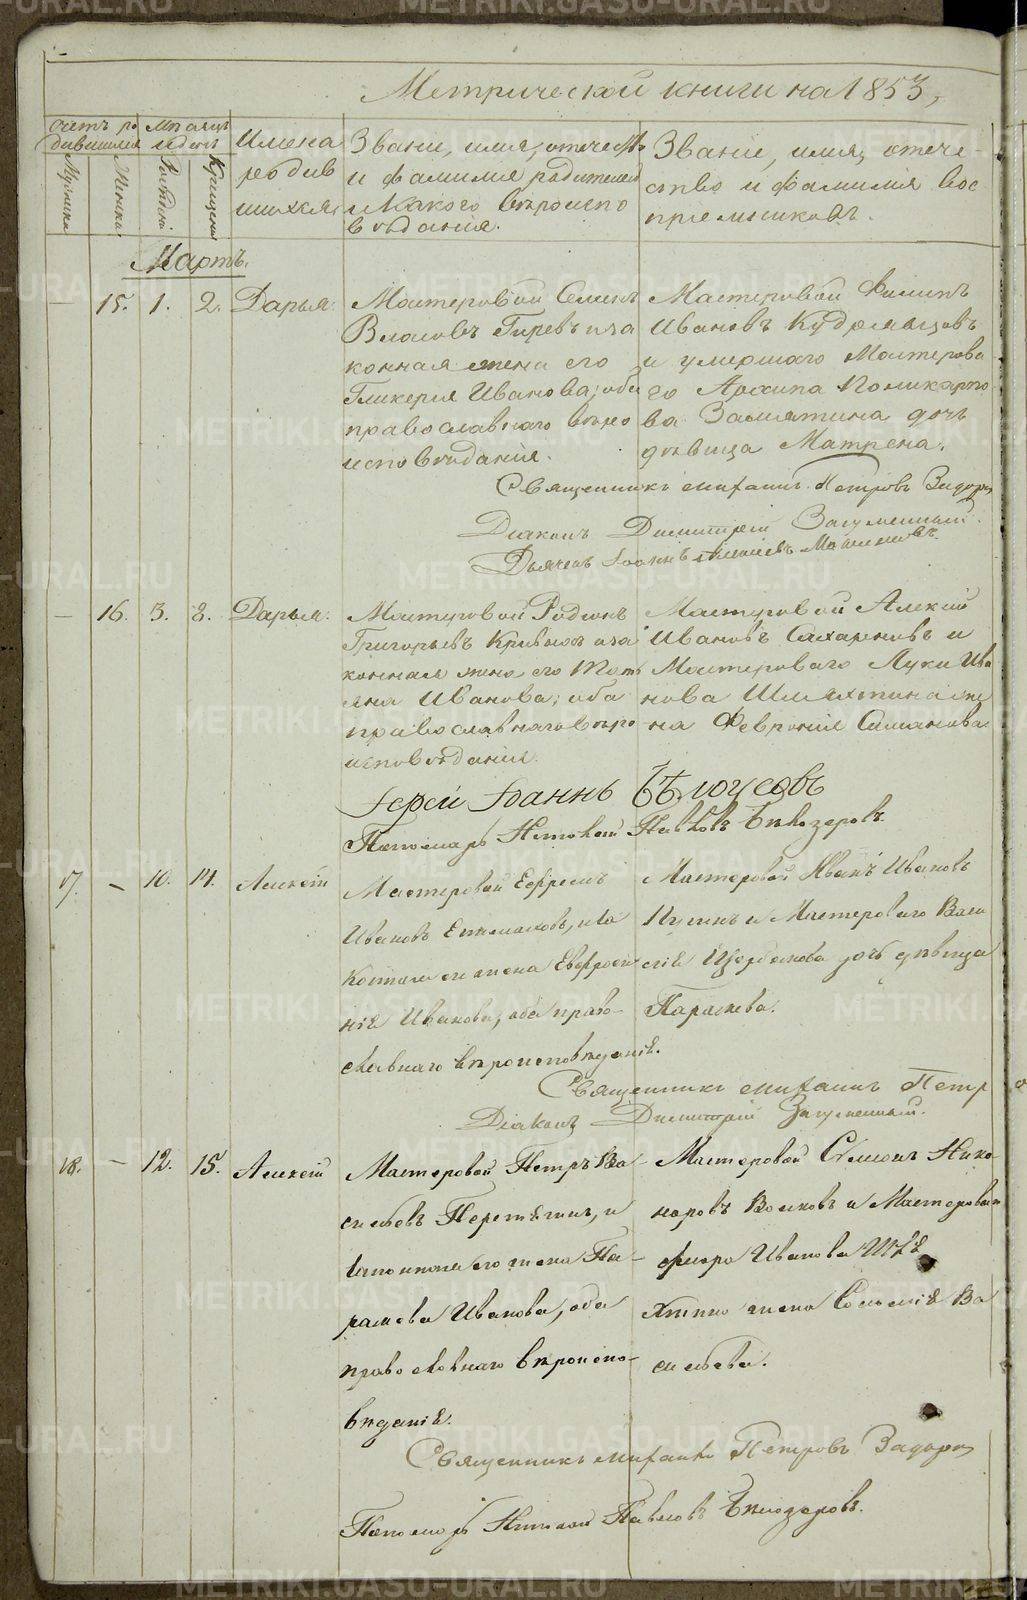 Метрической книги на 1853,
Счетъ ро
дившихся
Мѣсяцъ
и день
Имена
родив
шихся
Званіе, имя, отечество
и фамилія родителей
и какого вѣроиспо
вѣданія.
Званіе, имя, отече-
ство и фамилія вос
пріемниковъ.
Мужеска
Женска
Рожденія
Крещенія
Мартъ.
— 15. 1. 2. Дарья.
Мастеровой Семенъ
Власовъ Гиревъ и за
конная жена его
Гликерія Иванова, оба
православнаго вѣро
исповѣданія.
Мастеровой Филипъ
Ивановъ Кудрявцовъ
и умершаго Мастерова
го Архипа Поликарпо
ва Замятина дочь
дѣвица Матрена.
Священникъ Михаилъ Петровъ Задорин
Діаконъ Димитрій Загуменный.
Дьячекъ Іоаннъ
— 16. 3. 8. Дарья.
Мастеровой Родіонъ
Григорьевъ и за
конная жена его Тать
яна Иванова, оба
православнаго вѣро
исповѣданія.
Мастеровой Алексій
Ивановъ Сахаровъ и
Мастероваго Луки Ива
нова Шляхтина же
на Февронія Симанова.
Іерей Іоаннъ Бѣлоусовъ
Пономарь Николай Павловъ Бѣлозеровъ.
17. — 10. 14. Алексѣй
Мастеровой Ефремъ
Ивановъ и за
конная его жена Евфроси
нія Иванова, оба право-
славнаго вѣроисповѣданія.
Мастеровой Иванъ Ивановъ
и Мастероваго Васи
лія Щербакова дочь дѣвица
Параскева.
Священникъ Михаилъ Петр
Діаконъ Димитрій Загуменный.
18. — 12. 15. Алексѣй
Мастеровой Петръ Ва
сильевъ Перетягинъ, и
законная его жена Па-
раскева Иванова, оба
православнаго вѣроиспо-
вѣданія.
Мастеровой Семенъ Ника-
норовъ Волковъ и Мастероваго
Ѳедора Иванова Шля
хтина жена Соломія Ва
сильева.
Священникъ Михаилъ Петровъ Задорин
Пономарь Николай Павловъ Бѣлозеровъ.
METRIKI.GASO-URAL.RU